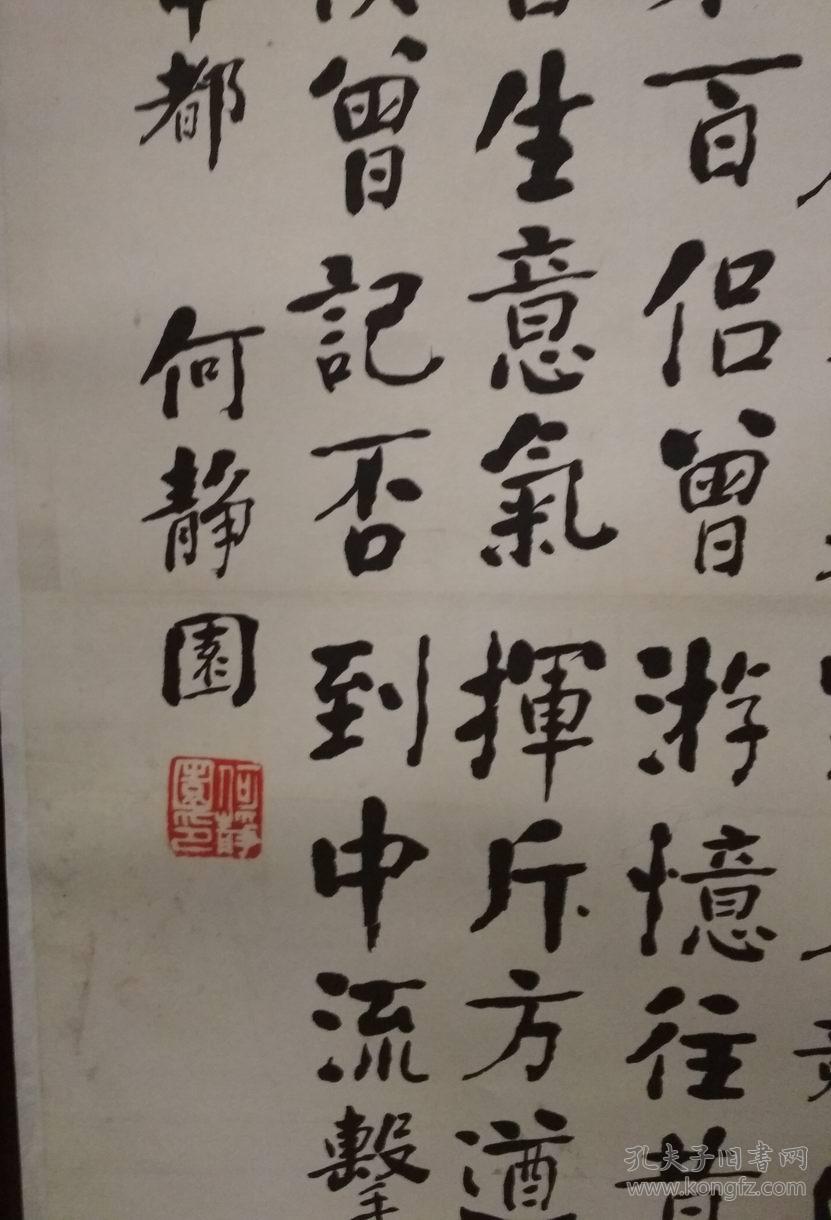 百侣曾游憶往昔
生意氣揮斥方遒
曾記否到中流擊
都 何靜園
何靜園印
孔夫子旧书网
www.kongfz.com